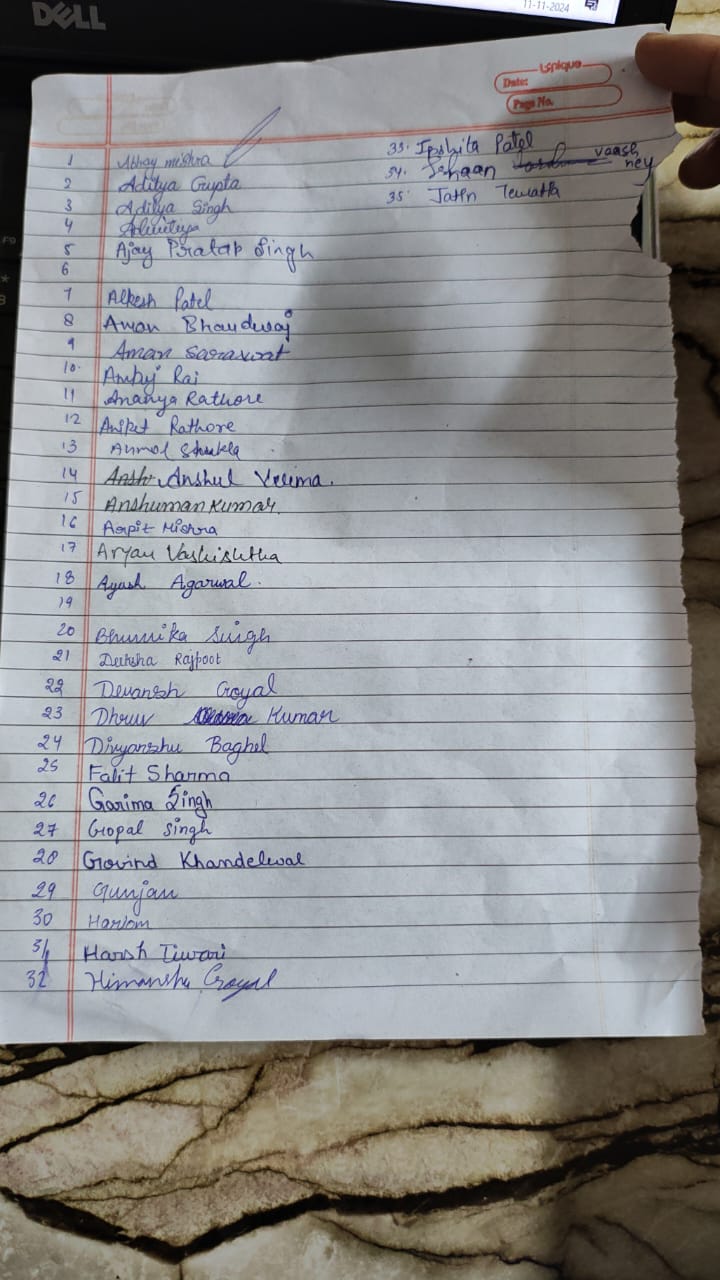 DELL
11-11-2024
Unique
Date:
Page No.
1 Abhay mishra
2 Aditya Gupta
3 Aditya Singh
4 Adwitya
5 Ajay Pratap Singh
6
7 Alkesh Patel
8 Aman Bhardwaj
9 Aman Saraswat
10. Ambuj Rai
11 Ananya Rathore
12 Aniket Rathore
13 Anmol Shukla
14 Anshul Verma.
15 Anshuman Kumar.
16 Arpit Mishra
17 Aryan Vashishtha
18 Ayush Agarwal.
19
20 Bhumika Singh
21 Deeksha Rajpoot
22 Devansh Goyal
23 Dhruv Kumar
24 Divyanshu Baghel
25 Falit Sharma
26 Garima Singh
27 Gopal Singh
28 Govind Khandelwal
29 Gunjan
30 Hariom
31 Harsh Tiwari
32 Himanshu Goyal
33. Ipshita Patel
34. Ishaan vaashney
35. Jatin Tewatia